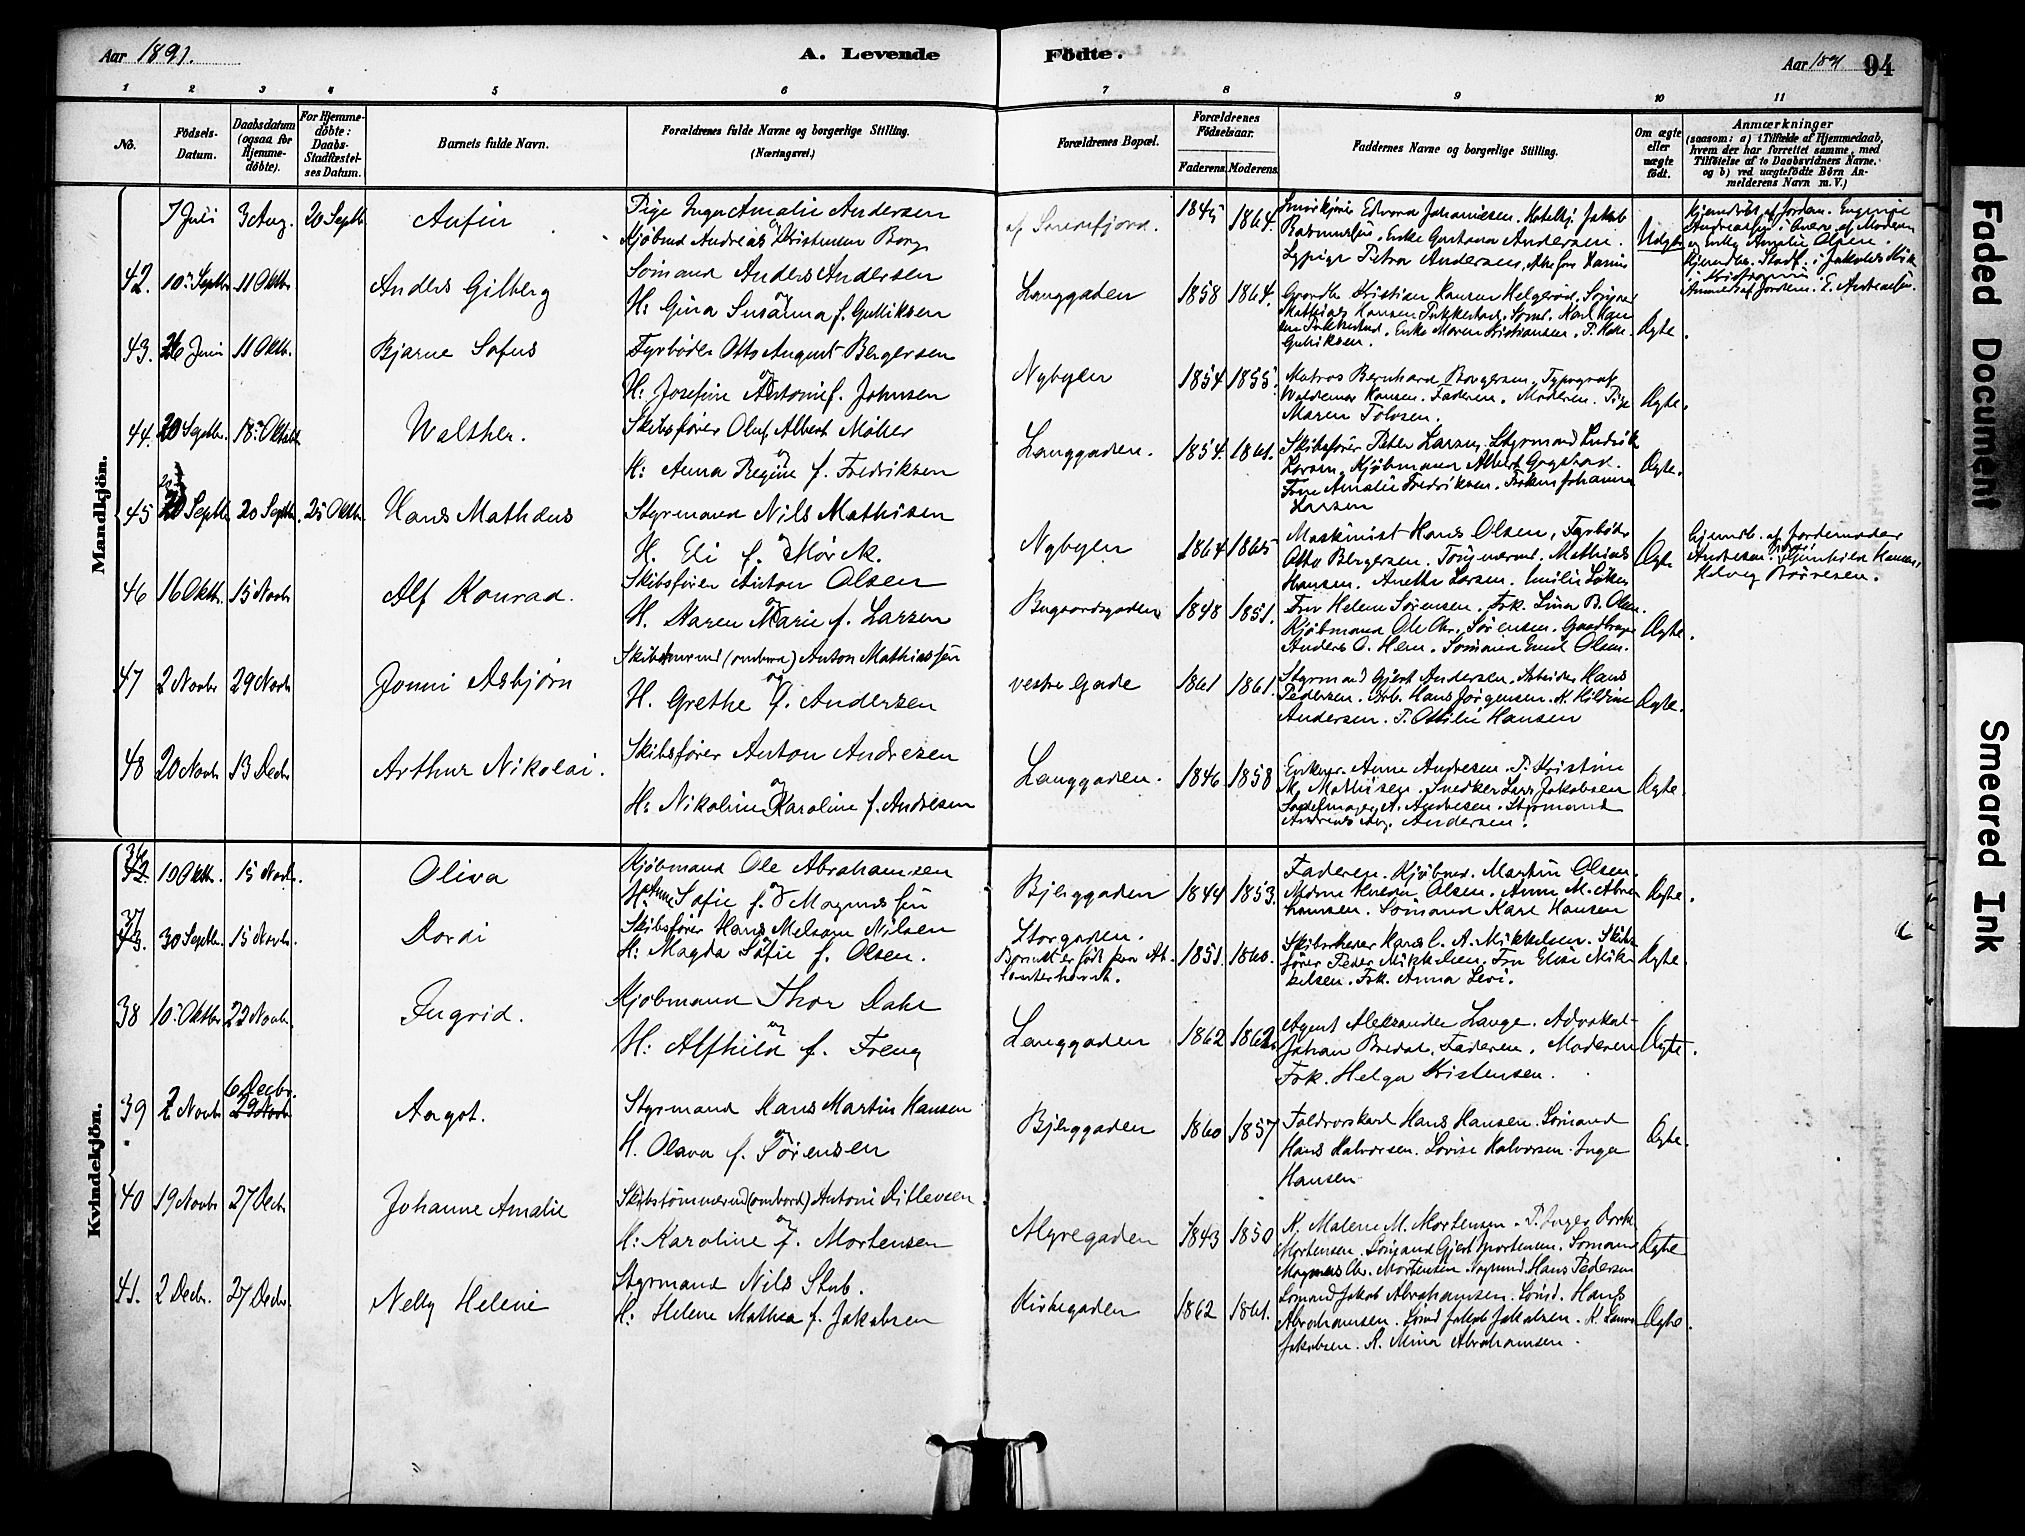 Aar 1891.
A. Levende
Födte.
Aar 1891
94
1 2 3 4 5 6 7 8 9 10 11
No.
Födsels-Datum.
Daabsdatum (ogsaa for Hjemme-döbte).
For Hjemme-döbte: Daabs-Stadfæstel-ses Datum.
Barnets fulde Navn.
Forældrenes fulde Navne og borgerlige Stilling. (Næringsvei.)
Forældrenes Bopæl.
Forældrenes Födselsaar.
Faderens. Moderens.
Faddernes Navne og borgerlige Stilling.
Om ægte eller uægte födt.
Anmærkninger (saasom: a) i Tilfælde af Hjemmedaab, hvem der har forrettet samme, med Tilföielse af to Daabsvidners Navne. og b) ved uægtefödte Börn An-melderens Navn m. V.)
Mandkjön.
7 Juli 3 Aug. 20 Septb. Anfin
Pige Inga Amalie Andersen
og
Kjøbmd Andreas Kristensen Borg
af Sandefjord. 1845 1864.
Edvard Johannesen.
Enke Gustava Andersen.
Petra Andersen,
Uægte
42. 10 Septbr 11 Oktbr Anders Gilberg
Sømand Anders Andersen
og
H: Gina Susanna f. Gulliksen
Langgaden 1858 1864.
Mathias Hansen
Enke Maren Kristiansen,
Guliksen.
Ægte.
43. 26 Juni 11 Oktb. Bjarne Sofus
Fyrbøder Otto August Bergersen
og
H: Josefine Antonie f. Johnsen
Nybyen 1854 1855.
Matros Bernhard Borgersen, Typograf
Waldemar Hansen. Faderen. Moderen. Pige
Maren Tolvsen.
Ægte.
44. 20 Septbr. 18 Oktob Walther.
Skibsfører Oluf Albert Møller
og
H: Anna Regine f. Fredriksen
Langgaden. 1854. 1861.
Skibsfører Peter Larsen, Styrmand Fredrik
Larsen, Kjøbmand Albert
Frue Amalie Fredriksen. Frøken Johanna
Larsen
Ægte.
45 20 Septbr 20 Septbr. 25 Oktbr. Hans Mathæus
Styrmand Nils Mathisen
og
H. Eli f. Mørck.
Nybyen 1864 1865
Maskinist Hans Olsen, Fyrbøder
Otto Bergersen. Tømmermd. Mathias
Hansen. Anette Larsen. Emilie Løken
Ægte
Hjemdb. af Jordemoder
Andresen. Gunhild Hansen,
Helvig Børresen.
46 16 Oktb. 15 Novbr Alf Konrad.
Skibsfører Anton Olsen
og
H. Karen Marie f. Larsen
Bugaardsgaden 1848 1851.
Fru Helene Sørensen. Frk. Lina B. Olsen.
Kjøbmand Ole Chr. Sørensen. Gaardbruger
Anders O. Hem. Sømand Emil Olsen.
Ægte.
47 2 Novbr 29 Novb Jonni Asbjørn
Skibstmrmd (ombord) Anton Mathiassen
og
H. Grethe f. Andersen
vestre Gade 1861 1861.
Styrmand Gjert Andersen. Arbeider Hans
Pedersen. Arb. Hans Jørgensen. K. Hildine
Andersen. P. Ottilie Hansen
Ægte.
48 20 Novbr 13 Decbr Arthur Nikolai.
Skibsfører Anton Andresen
og
H: Nikoline Karoline f. Andresen
Langgaden. 1846 1858
Enkem. Anne Andresen. P. Kristine
M. Mathisen. Snedker Lars Jakobsen
Sadelmager A. Andresen. Styrmand
Andreas Aug. Andersen.
Ægte.
Kvindekjön.
36 42. 10 Oktb. 15 Novb. Oliva
Kjøbmand Ole Abrahamsen
og
H: Anne Sofie f. Magnussen
Bjerggaden 1844 1853.
Faderen. Kjøbmd. Martin Olsen.
Olsen. Anne M. Abra-
hamsen. Sømand Karl Hansen
Ægte.
37 43. 30 Septbr. 15 Novbr. Dordi
Skibsfører Hans Melsom Nilsen
og
H: Magda Sofie f. Olsen.
Storgaden.
Barnet er født paa At-
lanterhavet.
1851. 1860.
Skibsreder Hans C. A. Mikkelsen. Skibs-
fører Peder Mikkelsen. Fru Elise Mik-
kelsen. Frk. Anna Levi.
Ægte.
38 10 Oktbr 22 Novbr. Ingrid.
Kjøbmand Thor Dahl
og
H: Alfhild f. Freng
Langgaden 1862 1862.
Agent Aleksander Lange. Advokat
Johan Bredal. Faderen. Moderen
Frk. Helga Kristensen.
Ægte.
39 2 Novbr 6 Decbr. 29 Novb Aagot.
Styrmand Hans Martin Hansen
og
H. Olava f. Sørensen
Bjerggaden 1860 1857
Toldvorskard Hans Hansen. Sømand
Hans Halvorsen. Lovise Halvorsen. Inga
Hansen
Ægte.
40 19 Novbr 27 Decb Johanne Amalie
Skibstømmermd (ombord) Antoni Ditlevsen.
og
H: Karoline f. Mortensen
Myregaden 1843 1850
K. Malene M. Mortensen. P. Inger
Mortensen. Sømand Gjert Mortensen. Sømand
Magnus Chr. Mortensen. Hans Pedersen
Ægte
41. 2 Decbr. 27 Decbr. Nelly Helene
Styrmand Nils Stub.
H: Helene Mathea f. Jakobsen
Kirkegaden 1862 1861.
Sømand Jakob Abrahamsen. Sømd. Hans
Abrahamsen. Sømd Jakob Jakobsen. K. Laura
Jakobsen. K. Mina Abrahamsen.
Ægte.
Faded Document
Smeared Ink